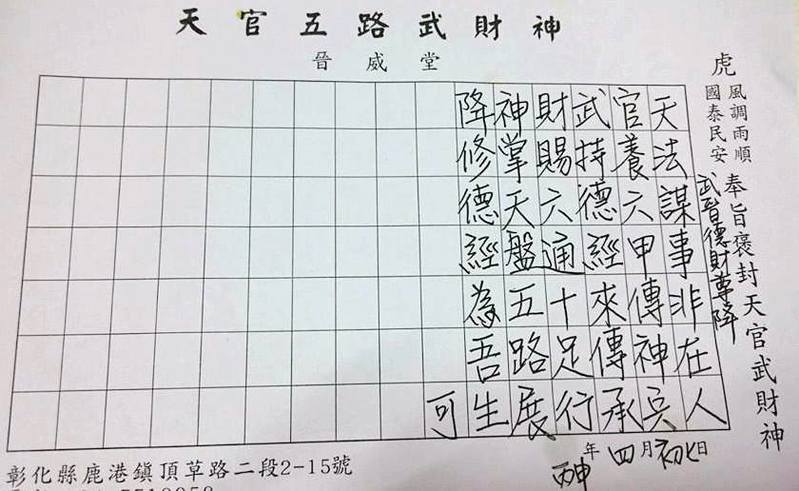 天官五路武財神
晉威堂
虎
風調雨順
國泰民安
奉旨褒封天官武財神
武晉德財尊降
天法謀事非在人
官養六甲傳神兵
武持德經來傳承
財賜六通十足行
神掌天盤五路展
降修德經為吾生
可
丙申年四月初七日
彰化縣鹿港鎮頂草路二段2-15號